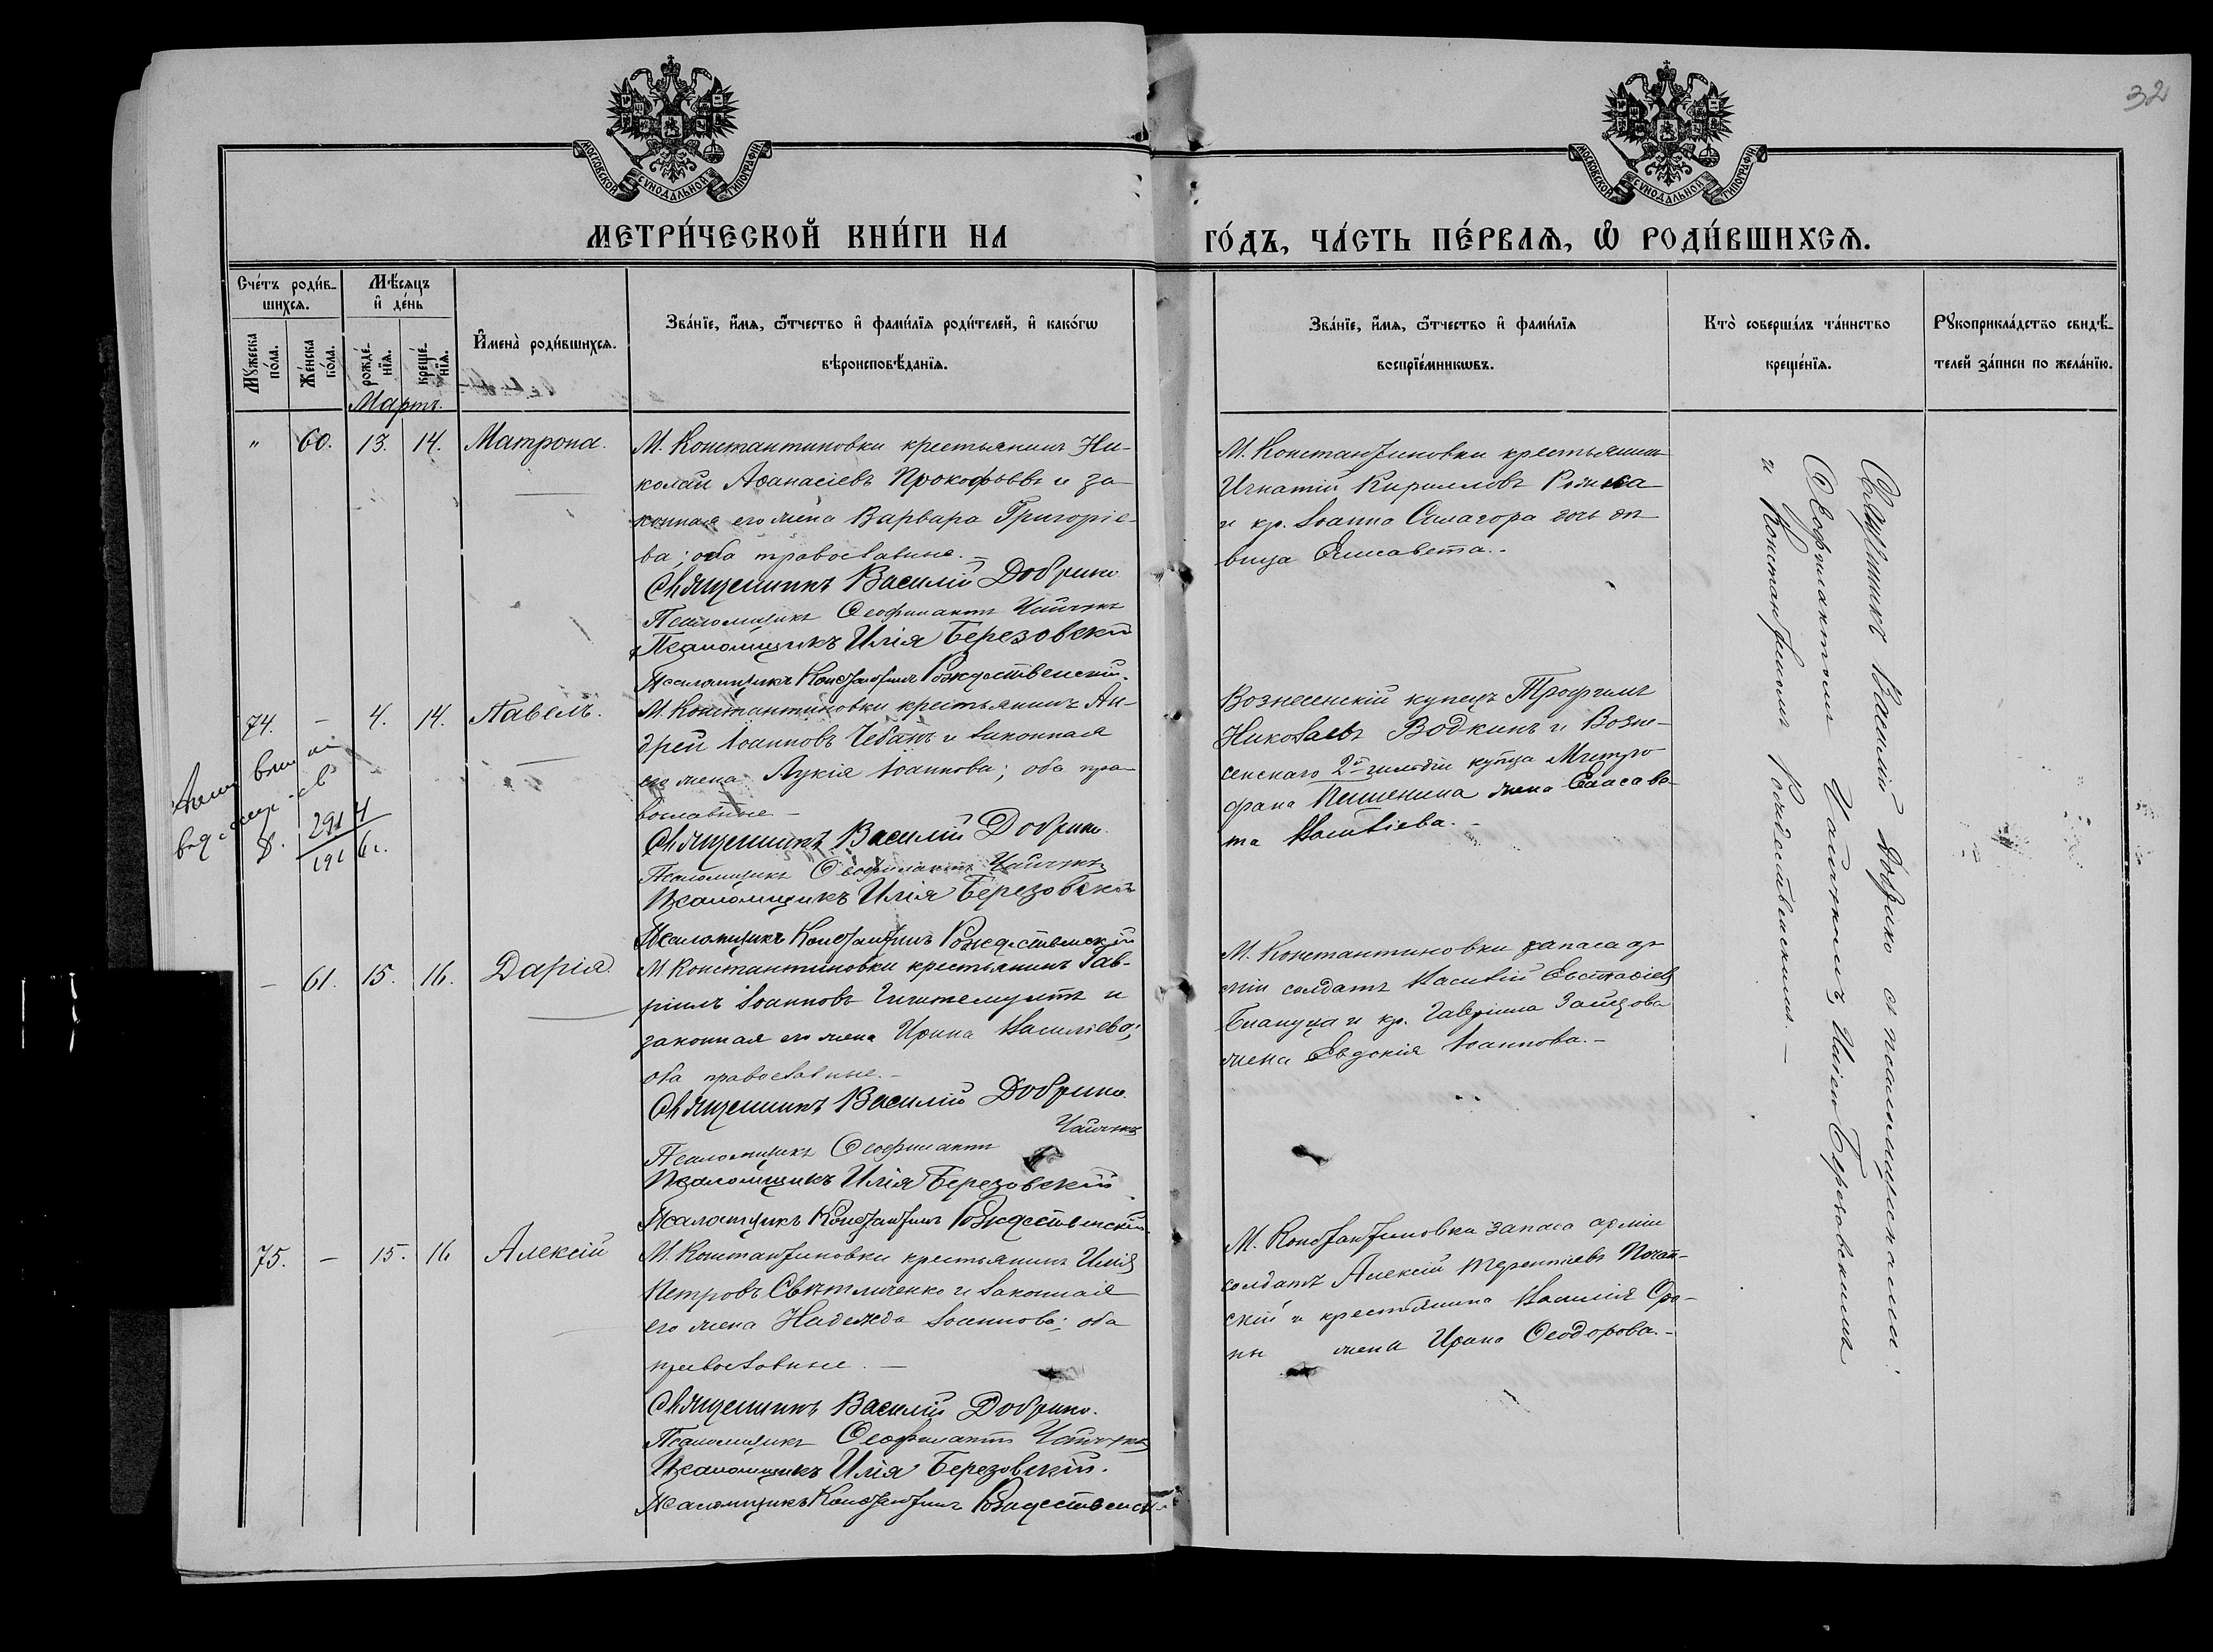 32
МОСКОВСКОЙ СѴНОДАЛЬНОЙ ТИПОГРАФІИ
МОСКОВСКОЙ СѴНОДАЛЬНОЙ ТИПОГРАФІИ
МЕТРИ́ЧЕСКОЙ КНИ́ГИ НА
ГО́ДЪ, ЧА́СТЬ ПЕ́РВАѦ, Ѡ҆ РОДИ́ВШИХСѦ.
Сче́тъ роди́в-
шихсѧ.
Мꙋ́жеска
по́ла.
Же́нска
по́ла.
Мѣ́сѧцъ
и҆ де́нь
рожде́-
нїѧ.
креще́-
нїѧ.
И҆мена̀ роди́вшихсѧ.
Зва́нїе, и҆́мѧ, ѻ҆́тчество и҆ фами́лїѧ роди́телей, и҆ како́гѡ
вѣроисповѣ́данїѧ.
Зва́нїе, и҆́мѧ, ѻ҆́тчество и҆ фами́лїѧ
воспрїе́мникѡвъ.
Кто̀ соверша́лъ та́инство
креще́нїѧ.
Рꙋкоприкла́дство свидѣ́-
телей за́писи по жела́нїю.
Мартъ.
" 60. 13. 14. Матрона.
М. Константиновки крестьянинъ Ни-
колай Аѳанасіевъ Прокофьевъ и за-
конная его жена Варвара Григоріе-
ва; оба православные. –
Священникъ Василій Добрико
Псаломщикъ Ѳеофилактъ
Псаломщикъ Илія Березовскій
Псаломщикъ Константинъ Рождественскій.
М. Константиновки крестьянинъ
Игнатій Кирилловъ
и кр. Іоанна дочь дѣ-
вица Елисавета. -
74. – 4. 14. Павелъ.
М. Константиновки крестьянинъ Ан-
дрей Іоанновъ Чебанъ и законная
его жена Лукія Іоаннова; оба пра-
вославные –
Священникъ Василій Добрико.
Псаломщикъ Ѳеофилактъ
Псаломщикъ Илія Березовскій
Псаломщикъ Константинъ Рождественскій
Вознесенскій купецъ Трофимъ
Николаевъ Водкинъ и Возне-
сенскаго 2й гильдіи купца Митро-
фана жена Елисаве-
та
8.
– 61. 15. 16. Дарія.
М Константиновки крестьянинъ Гав-
ріилъ Іоанновъ и
законная его жена Ирина Василіева;
оба православные. –
Священникъ Василій Добрико.
Псаломщикъ Ѳеофилактъ
Псаломщикъ Илія Березовскій
Псаломщикъ Константинъ Рождественскій
М. Константиновки запаса ар-
міи солдатъ Василій Евстафіевъ
и кр. Гавріила Зайцова
жена Евдокія Іоаннова. –
75. – 15. 16 Алексій
М. Константиновки крестьянинъ Илія
Петровъ Свѣтличенко и законная
его жена Надежда Іоаннова; оба
православные. –
Священникъ Василій Добрико.
Псаломщикъ Ѳеофилактъ
Псаломщикъ Илія Березовскій.
Псаломщикъ Константинъ Рождественскій
М. Константиновки запаса арміи
солдатъ Алексій Терентіевъ
и крестьянина Василія
жена Ирина Ѳеодорова. –
Священникъ Василій Добрико съ псаломщиками:
Ѳеофилактомъ Иліею Березовскимъ
и Константиномъ Рождественскимъ. –